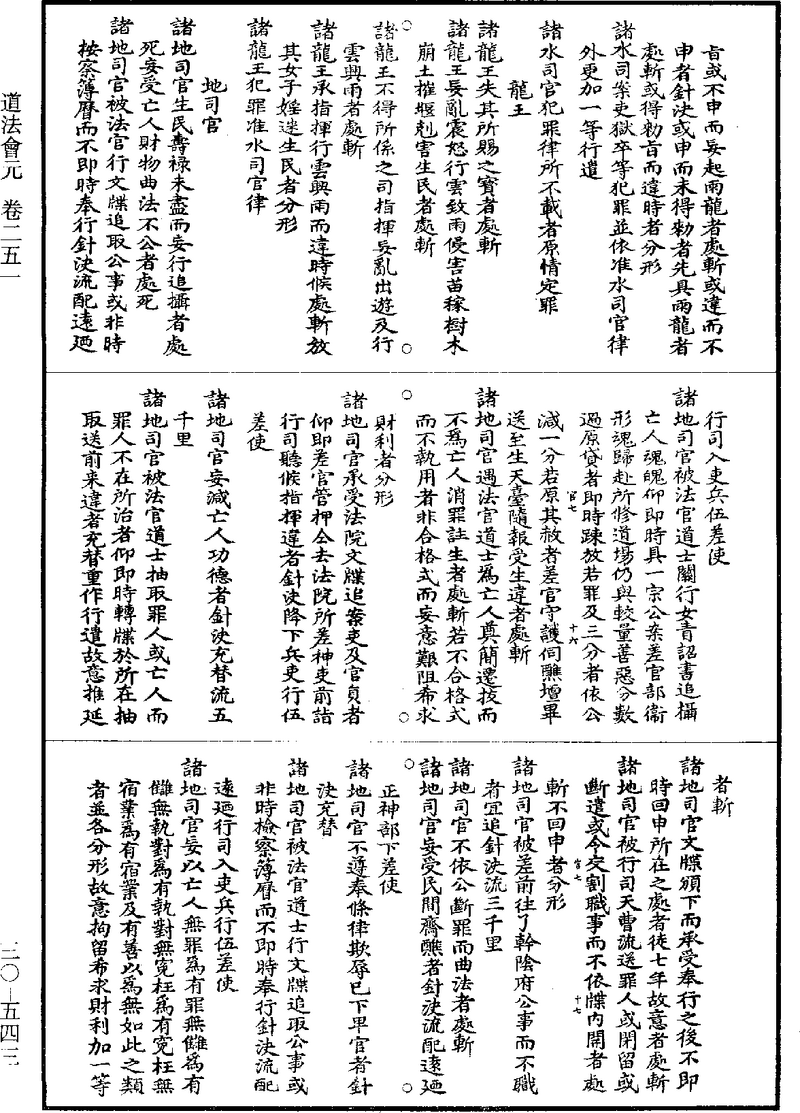 道法會元　卷二五一
三〇—五四三
旨或不申而妄起雨龍者處斬或違而不
申者針決或申而未得勅者先具雨龍者
處斬或得勅旨而違時者分形
諸水司案吏獄卒等犯罪並依准水司官律
外更加一等行遣
諸水司官犯罪律所不載者原情定罪
龍王
諸龍王失其所賜之寶者處斬
諸龍王妄亂震怒行雲致雨侵害苗稼樹木
崩土摧堰剋害生民者處斬
諸龍王不得所係之司指揮妄亂出遊及行
雲興雨者處斬
諸龍王承指揮行雲興雨而違時候處斬放
其女子婬迷生民者分形
諸龍王犯罪准水司官律
地司官
諸地司官生民壽祿未盡而妄行追攝者處
死妄受亡人財物曲法不公者處死
諸地司官被法官行文牒追取公事或非時
按察簿曆而不即時奉行針決流配遠迺
行司入吏兵伍差使
諸地司官被法官道士關行女青詔書追攝
亡人魂魄仰即時具一宗公案差官部衛
形魂歸赴所修道場仍與較量善惡分數
過原貸者即時踈放若罪及三分者依公
官七
十六
減一分若原其赦者差官守護伺醮壇畢
送至生天臺隨報受生違者處斬
諸地司官遇法官道士為亡人奠簡遷拔而
不為亡人消罪註生者處斬若不合格式
而不執用者非合格式而妄意難阻希求
財利者分形
諸地司官承受法院文牒追案吏及官員者
仰即差官管押公去法院所差神吏前詣
行司聽候指揮違者針決降下兵吏行伍
差使
諸地司官妄減亡人功德者針決充替流五
千里
諸地司官被法官道士抽取罪人或亡人而
罪人不在所治者仰即時轉牒於所在抽
取送前來違者充替重作行遣故意推延
者斬
諸地司官文牒頒下而承受奉行之後不即
時回申所在之處者徒七年故意者處斬
諸地司官被行司天曹流送罪人或閉留或
斷遣或令交割職事而不依牒內開者處
官七
十七
斬不回申者分形
諸地司官被差前往了幹陰府公事而不職
者宜追針決流三千里
諸地司官不依公斷罪而曲法者處斬
諸地司官妄受民間齋醮者針決流配遠迺
正神部下差使
諸地司官不遵奉條律欺辱已下卑官者針
決充替
諸地司官被法官道士行文牒追取公事或
非時檢察簿曆而不即時奉行針決流配
遠迺行司入吏兵行伍差使
諸地司官妄以亡人無罪為有罪無讎為有
讎無執對為有執對無冤枉為有冤枉無
宿業為有宿業及有善以為無如此之類
者並各分形故意拘留希求財利加一等